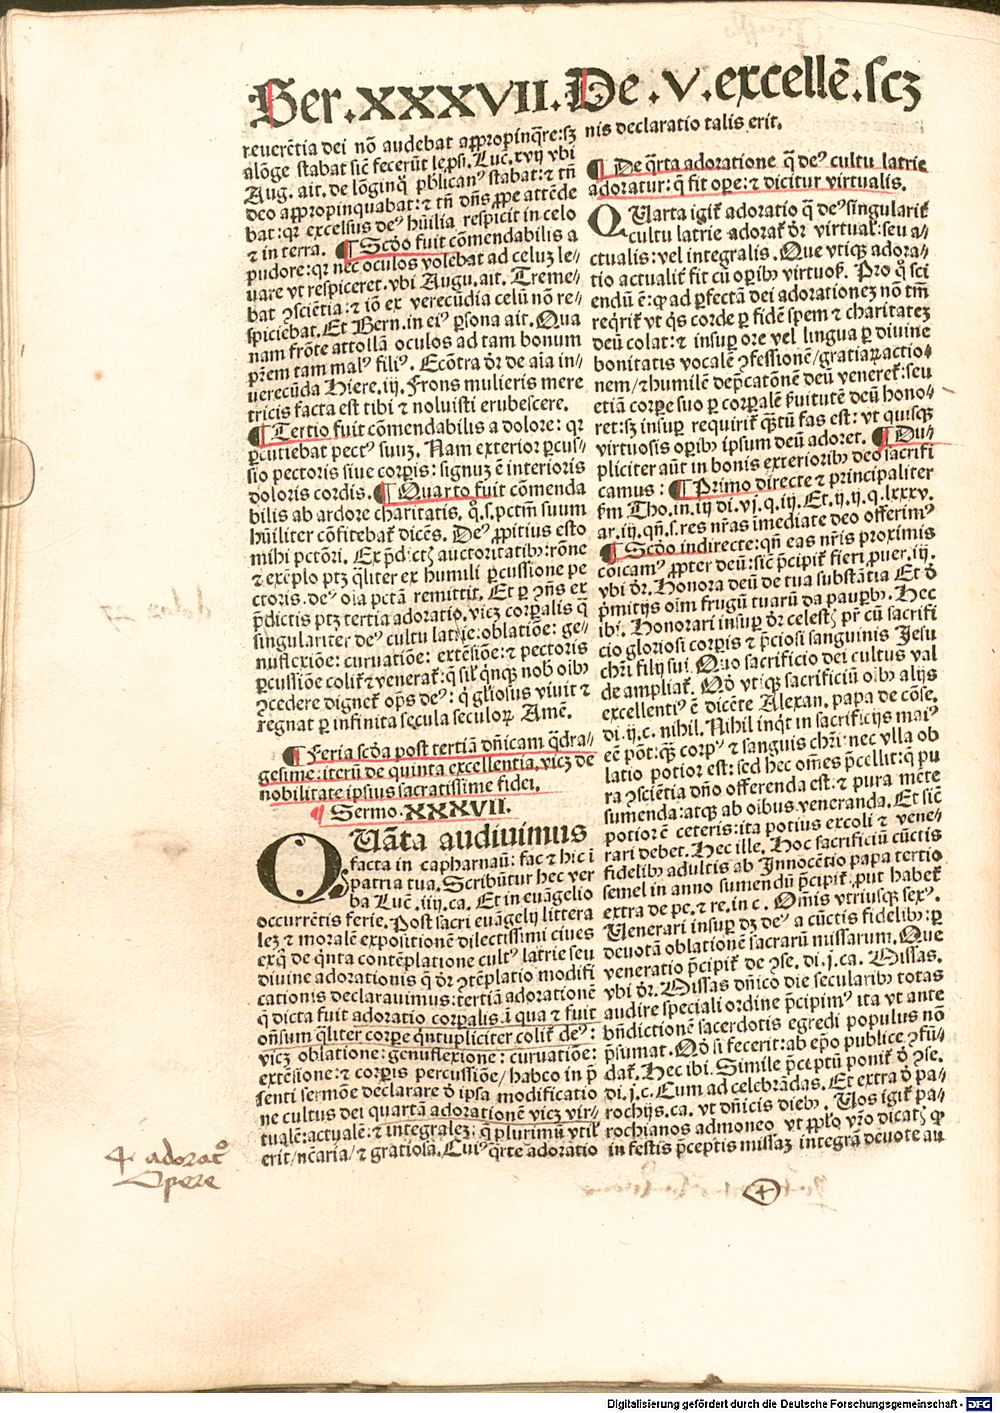 Ser. XXXVII. De .V. excellē. scꝫ
reuerētia dei nō audebat appropinq̄re: sꝫ
alōge stabat sicē fecerūt lep̄si. Luc̄. xvij vbi
Aug. ait. de lōginq̊ pblicanꝰ stabat: ⁊ tn̄
deo appropinquabat: ⁊ tn̄ dn̄s ꝓpe attēde
bat: qꝛ excelsus deꝰ hūilia respicit in celo
⁊ in terra. ¶ Scd̄o fuit cōmendabilis a
pudore: qꝛ nec oculos volebat ad celuꝫ le-
uare vt respiceret. vbi Augu. ait. Treme-
bat ꝯsciētia: ⁊ iō ex verecūdia celū nō re-
spiciebat. Et Bern. in eiꝰ ꝑsona ait. Qua
nam frōte attollā oculos ad tam bonum
pr̄em tam malꝰ filiꝰ. Ecōtra dr̄ de aīa in-
uerecūda Hiere. iij. Frons mulieris mere
tricis facta est tibi ⁊ noluisti erubescere.
¶ Tertio fuit cōmendabilis a dolore: qꝛ
ꝑcutiebat pectꝰ suuꝫ. Nam exterior ꝑcus-
sio pectoris siue corꝑis: signuꝫ ē interioris
doloris cordis. ¶ Quarto fuit cōmenda
bilis ab ardore charitatis. q̊. s. pctm̄ suum
hūiliter cōfitebat᷑ dicēs. Deꝰ ꝓpitius esto
mihi pctōri. Ex p̄dictꝭ auctoritatibꝰ: rōne
⁊ exēplo ptꝫ q̄liter ex humili ꝑcussione pe
ctoris. deꝰ oīa pctā remittit. Et ꝑ ꝯn̄s ex
p̄dictis ptꝫ tertia adoratio. vicꝫ corꝑalis q̄
singulariter deꝰ cultu latrie: oblatiōe: ge-
nuflexiōe: curuatiōe: extēsiōe: ⁊ pectoris
ꝑcussiōe colit᷑ ⁊ venerat᷑: q̄ sil᷑ q̇nqꝫ nob̄ oībꝰ
ꝯcedere dignet᷑ oп̄s deꝰ: q̇ gl̄iosus viuit ⁊
regnat ꝑ infinita secula seculoꝝ. Amē.
¶ Feria scd̄a post tertiā dn̄icam q̄dra-
gesime: iterū de quinta excellentia. vicꝫ de
nobilitate ipsius sacratissime fidei.
¶ Sermo. XXXVII.
QUāta audiuimus
facta in capharnaū: fac ⁊ hic ī
patria tua. Scribūtur hec ver
ba Luc̄. iiij. ca. Et in euāgelio
occurrētis ferie. Post sacri euāgelij littera
leꝫ ⁊ moralē expositionē dilectissimi ciues
exq̊ de q̇nta contēplatione cultꝰ latrie seu
diuine adorationis q̄ dr̄ ꝯtēplatio modifi
cationis declarauimus: tertiā adorationē
q̄ dicta fuit adoratio corꝑalis. ī qua ⁊ fuit
on̄sum q̄liter corꝑe q̇ntupliciter colit᷑ deꝰ:
vicꝫ oblatione: genuflexione: curuatiōe:
extēsiōe: ⁊ corꝑis percussiōe / habeo in p̄
senti sermōe declarare ꝺ ipsa modificatio
ne cultus dei quartā adorationē vicꝫ vir-
tualē: actualē: ⁊ integraleꝫ: q̄ plurimū vtil᷑
erit / necaria / ⁊ gratiosa. Cuiꝰ q̄rte adoratio
nis declaratio talis erit.
¶ De q̄rta adoratione q̄ deꝰ cultu latrie
adoratur: q̄ fit oꝑe: ⁊ dicitur virtualis.
QUarta igit᷑ adoratio q̄ deꝰ singularit᷑
cultu latrie adorat᷑ dr̄ virtual᷑: seu a-
ctualis: vel integralis. Que vtiqꝫ adora-
tio actualit᷑ fit cū oꝑibꝰ virtuos᷑. Pro q̊ sci
endū ē: ꝙ ad ꝑfectā dei adorationeꝫ nō tm̄
req̇rit᷑ vt q̇s corde ꝑ fidē spem ⁊ charitateꝫ
deū colat: ⁊ insuꝑ ore vel lingua ꝑ diuine
bonitatis vocalē ꝯfessionē / gratiaꝝ actio-
nem / ⁊ humilē dep̄catōnē deū veneret᷑: seu
etiā corꝑe suo ꝑ corꝑalē ẜuitutē deū hono-
ret: sꝫ insuꝑ requirit᷑ qꝫtū fas est: vt quisqꝫ
virtuosis oꝑibꝰ ipsum deū adoret. ¶ Du-
pliciter aūt in bonis exterioribꝰ deo sacrifi
camus: ¶ Primo directe ⁊ principaliter
ẜm Tho. in. iij di. vj. q. iij. Et. ij. ij. q. lxxxv.
ar. iij. qn̄. s. res nr̄as īmediate deo offerimꝰ
¶ Scd̄o indirecte: qn̄ eas nr̄is proximis
cōicamꝰ ꝓpter deū: sicē p̄cipit᷑ fieri ꝓuer. iij.
vbi dr̄. Honora deū de tua substātia Et ꝺ
p̄mitijs oīm frugū tuarū da pauꝑibꝰ. Hec
ibi. Honorari insuꝑ dr̄ celestꝭ pr̄ cū sacrifi
cio gloriosi corꝑis ⁊ p̄ciosi sanguinis Jesu
chr̄i filij sui. Quo sacrificio dei cultus val
de ampliat᷑. Qd̄ vtiqꝫ sacrificiū oībꝰ alijs
excellentiꝰ ē dicēte Alexan. papa de cōse.
di. ij. c. nihil. Nihil inq̇t in sacrificijs maiꝰ
eē pōt: qꝫ corpꝰ ⁊ sanguis chr̄i: nec vlla ob
latio potior est: sed hec om̄es p̄cellit: q̄ pu
ra ꝯsciētia dn̄o offerenda est: ⁊ pura mēte
sumenda: atqꝫ ab oībus veneranda. Et sicē
potiorē ceteris: ita potius excoli ⁊ vene-
rari debet. Hec ille. Hoc sacrificiū cūctis
fidelibꝰ adultis ab Innocētio papa tertio
semel in anno sumendū p̄cipit᷑. put habet᷑
extra de pe. ⁊ re. in c. Om̄is vtriusqꝫ sexꝰ.
Venerari insuꝑ dꝫ deꝰ a cūctis fidelibꝰ: ꝑ
deuotā oblationē sacrarū missarum. Que
veneratio p̄cipit᷑ de ꝯse. di. j. ca. Missas.
vbi dr̄. Missas dn̄ico die secularibꝰ totas
audire speciali ordine p̄cipimꝰ ita vt ante
bn̄dictionē sacerdotis egredi populus nō
p̄sumat. Qd̄ si fecerit: ab ep̄o publice ꝯfū-
dat᷑. Hec ibi. Simile p̄ceptū ponit᷑ ꝺ ꝯse.
di. j. c. Cum ad celebrādas. Et extra ꝺ pa-
rochijs. ca. vt dn̄icis diebꝰ. Uos igit᷑ pa-
rochianos admoneo vt ppl̄o vr̄o dicatꝭ ꝙ
in festis p̄ceptis missaꝫ integrā deuote au
4 adorat̊
Opere
4
Digitalisierung gefördert durch die Deutsche Forschungsgemeinschaft - DFG